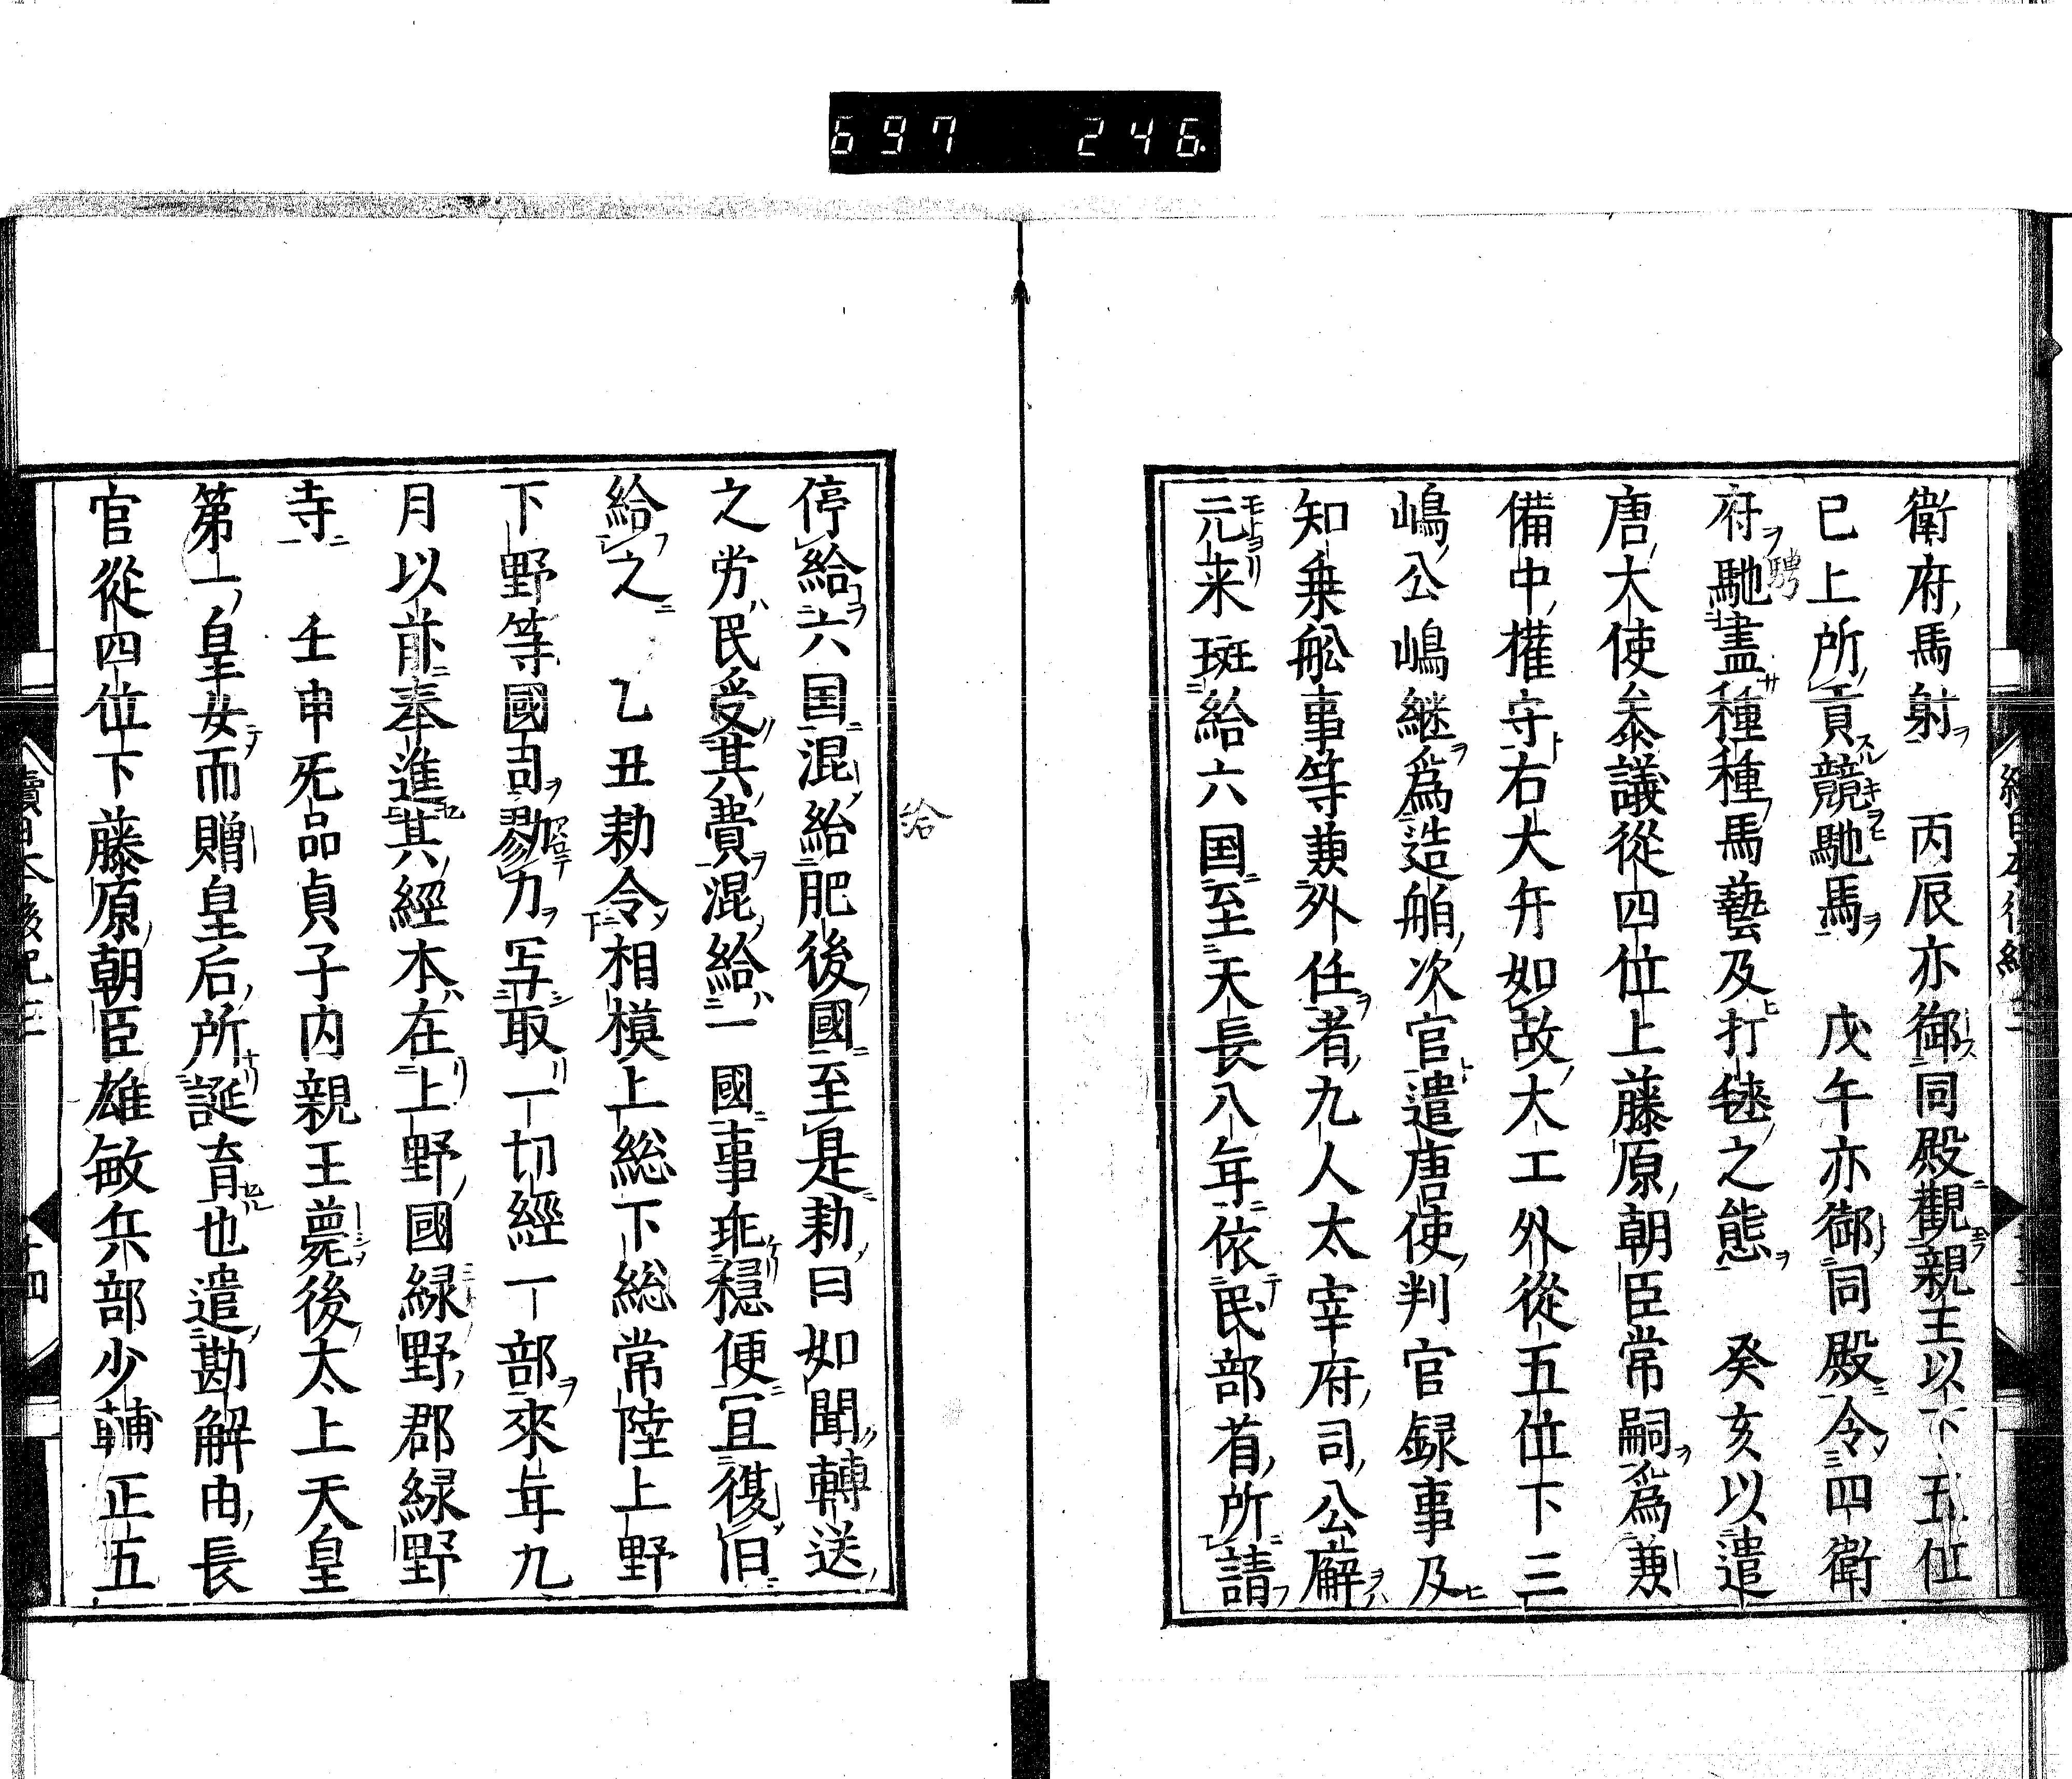 697 246
衛府馬射 丙辰亦御同殿觀親王以下五位
已上所貢競馳馬 戊午亦御同殿令四衛
府馳盡種種馬藝及打毬之態 癸亥以遣
騁
唐大使叅議從四位上藤原朝臣常嗣爲兼
備中權守右大弁如故大工外從五位下三
嶋公嶋継爲造舶次官遣唐使判官録事及
知乗舩事等兼外任者九人太宰府司公廨
元来班給六国至天長八年依民部省所請
停給六国混給肥後國至是勅曰如聞轉送
給
之労民受其費混給一國事乖穏便冝復旧
給之 乙丑勅令相模上総下総常陸上野
下野等國司勠力写取一切經一部來年九
月以前奉進其經本在上野國緑野郡緑野
寺 壬申旡品貞子内親王薨後太上天皇
第一皇女而贈皇后所誕育也遣勘解由長
官從四位下藤原朝臣雄敏兵部少輔正五